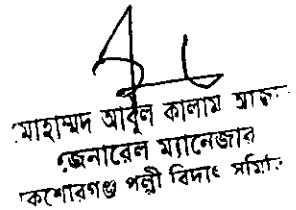 মোহাম্মদ আবুল কালাম
জেনারেল ম্যানেজার
কিশোরগঞ্জ পল্লী বিদ্যুৎ সমিতি